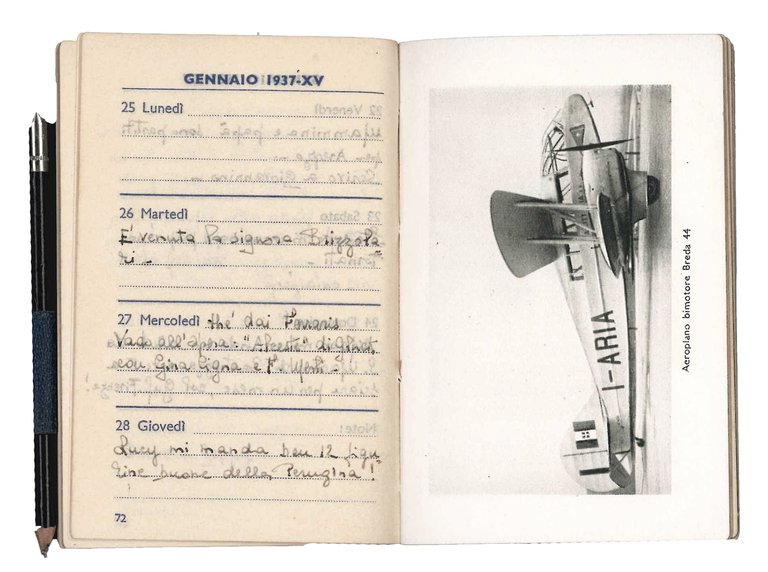 GENNAIO 1937-XV
25 Lunedì
26 Martedì
È venuta la signora Brizzola
ri -
27 Mercoledì thè dai Ferraris
Vado all'opera: "Alceste" di Gluck,
con Gina Cigna e
28 Giovedì
Lucy mi manda ben 12 figu
rine buone della Perugina!
72
I-ARIA
Aeroplano bimotore Breda 44